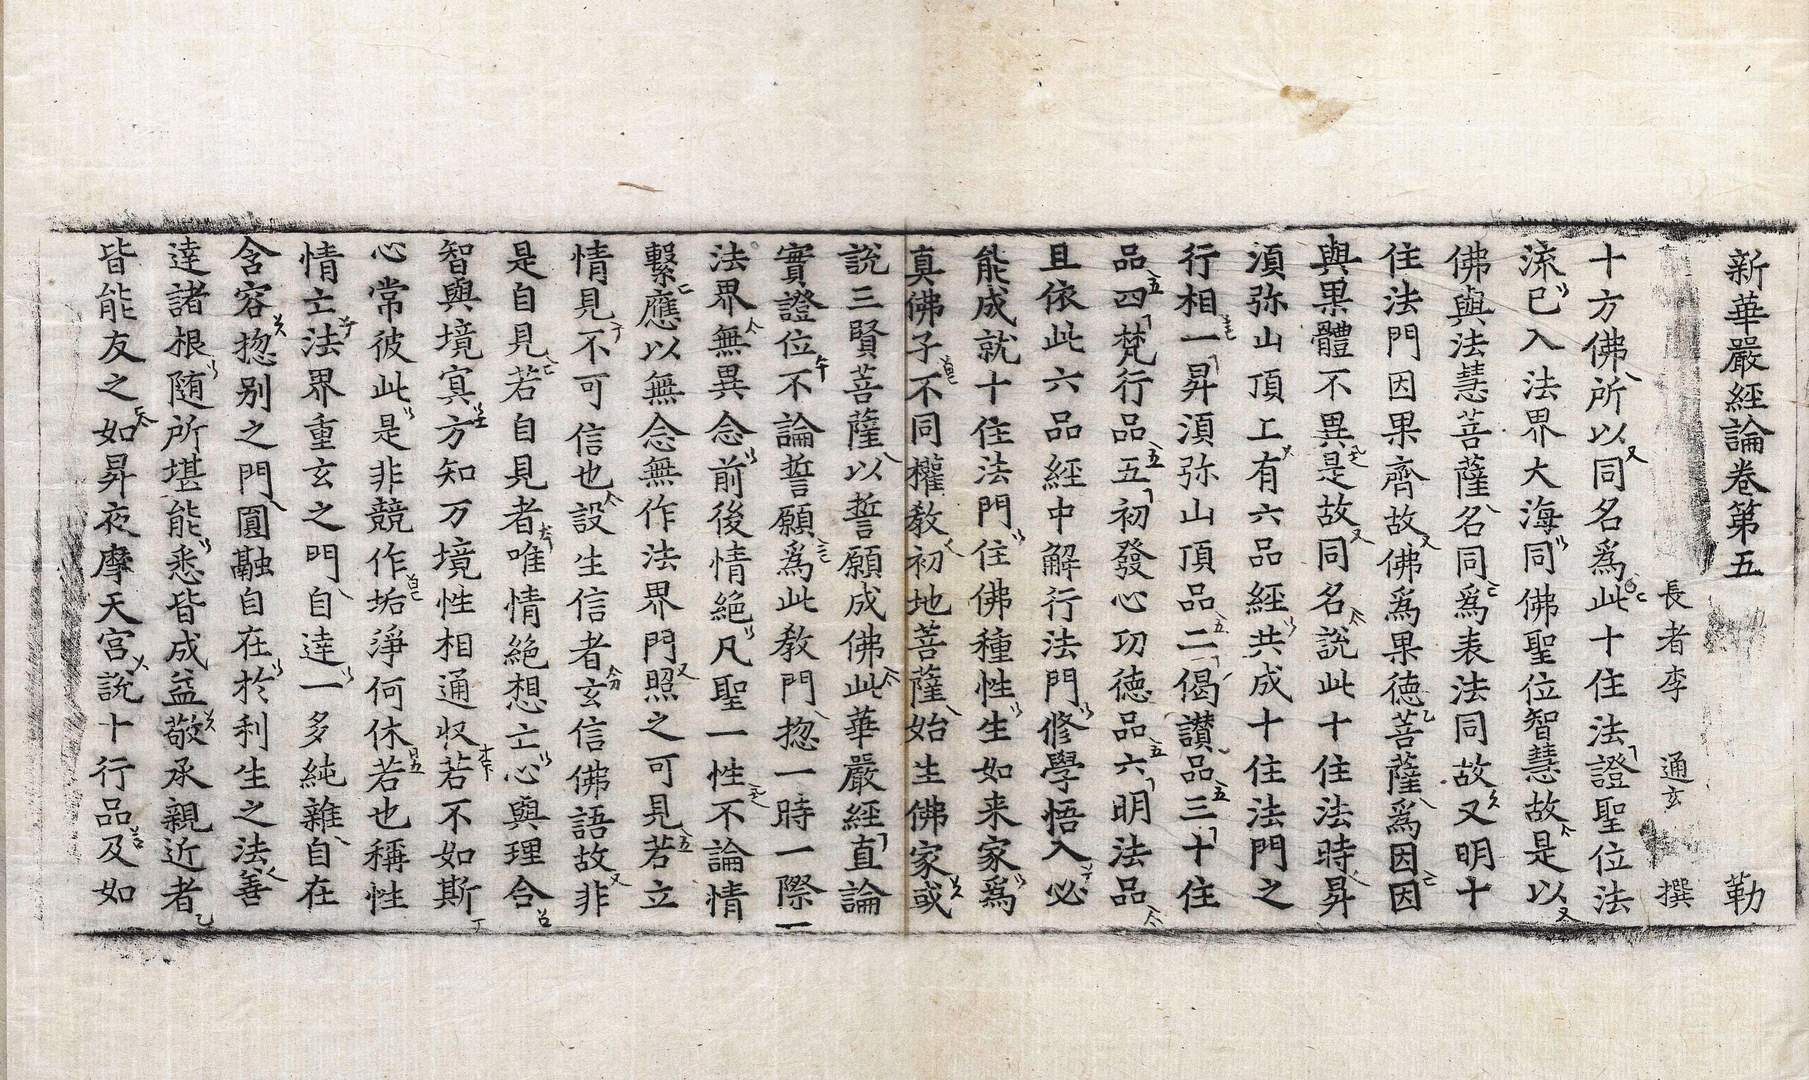 新華嚴經論卷第五 勒
長者李 通玄 撰
十方佛所以同名爲此十住法證聖位法
流已入法界大海同佛聖位智慧故是以
佛與法慧菩薩名同爲表法同故又明十
住法門因果齊故佛爲果德菩薩爲因因
與果體不異是故同名說此十住法時昇
須弥山頂上有六品經共成十住法門之
行相一昇須弥山頂品二偈讃品三十住
品四梵行品五初發心功德品六明法品
且依此六品經中解行法門修學悟入必
能成就十住法門住佛種性生如来家爲
真佛子不同權教初地菩薩始生佛家或
說三賢菩薩以誓願成佛此華嚴經直論
實證位不論誓願爲此教門揔一時一際一
法界無異念前後情絶凡聖一性不論情
繫應以無念無作法界門照之可見若立
情見不可信也設生信者玄信佛語故非
是自見若自見者唯情絶想亡心與理合
智與境㝠方知万境性相通収若不如斯
心常彼此是非競作垢淨何休若也稱性
情亡法界重玄之門自達一多純雜自在
含容揔别之門圓融自在於利生之法善
達諸根随所堪能悉皆成益敬承親近者
皆能友之如昇夜摩天宮說十行品及如